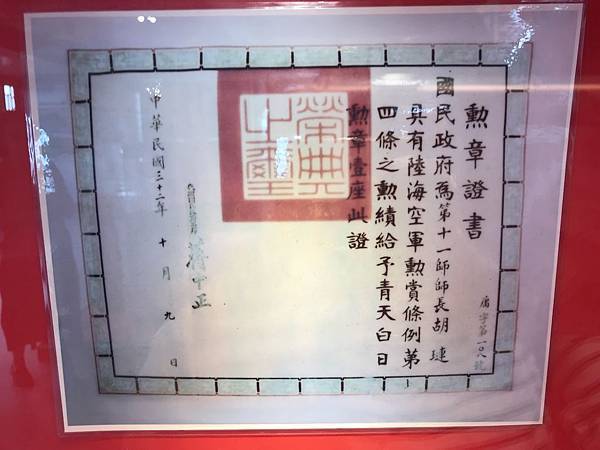 勲章證書
國民政府為第十一師師長胡璉
具有陸海空軍勲賞條例第
四條之勲績給予青天白日
勲章壹座此證
榮典之璽
蔣中正
中華民國三十二年 十月 九日